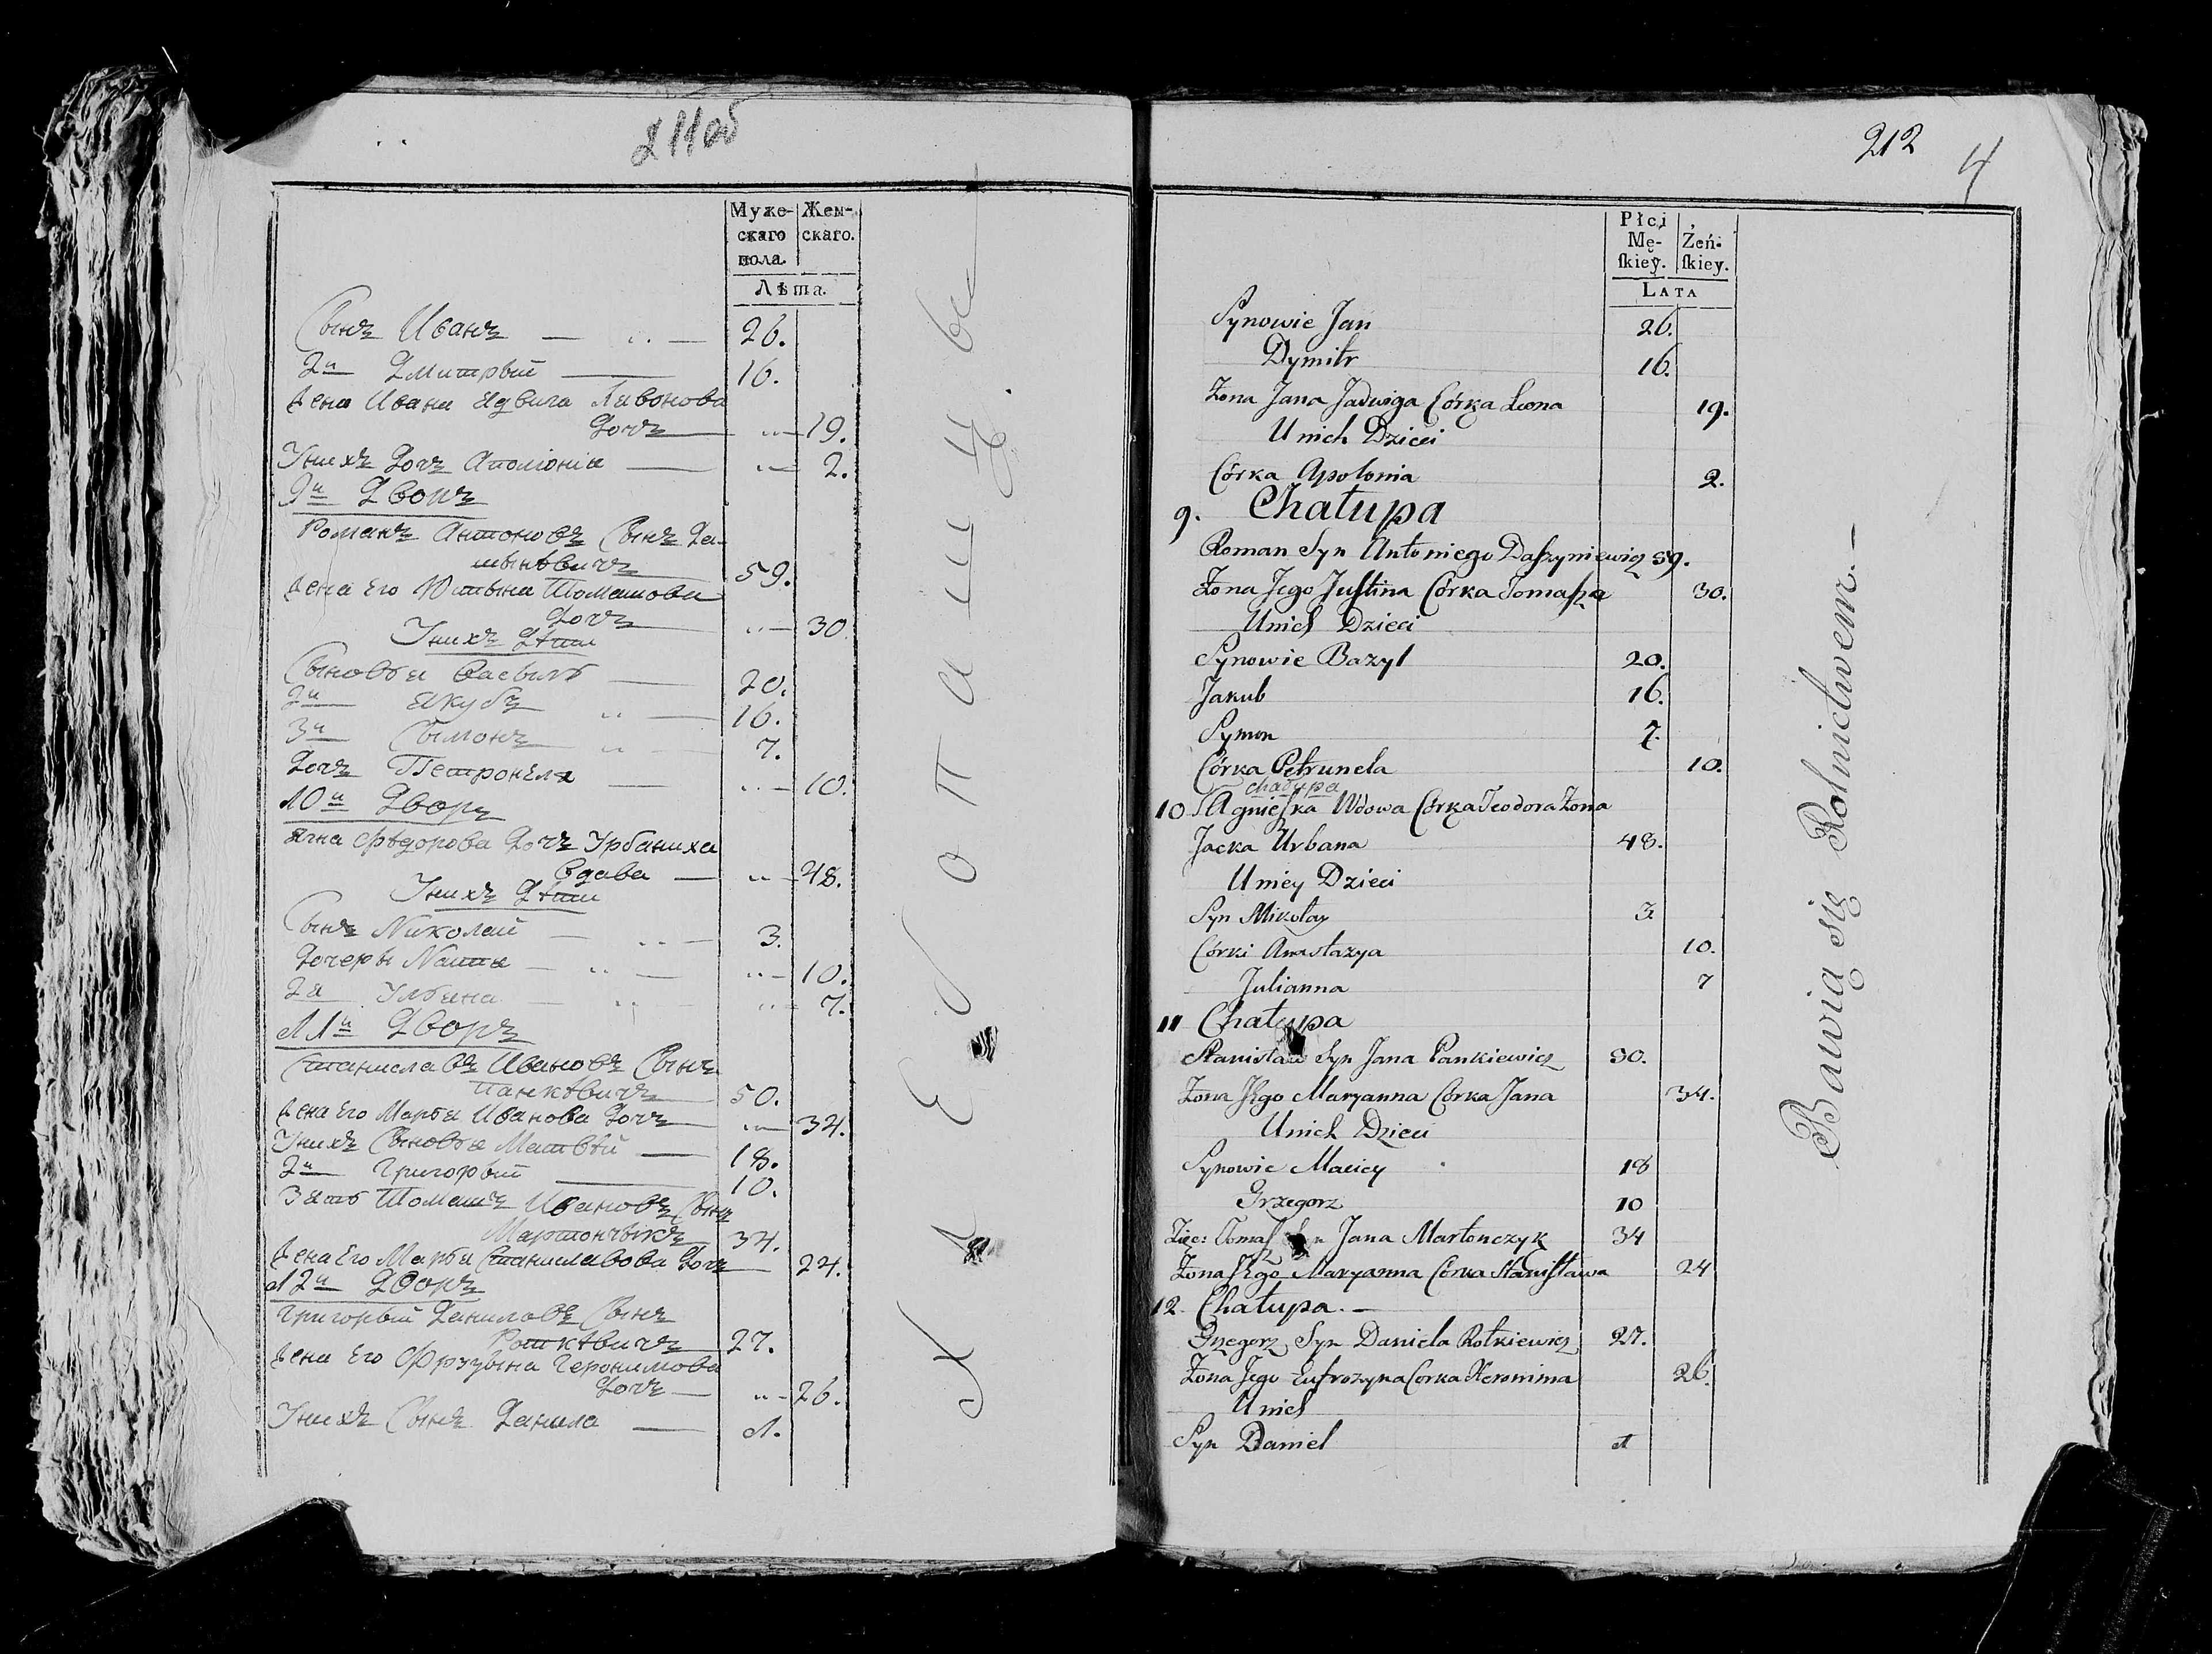 211об
Муже-
скаго
пола.
Жен-
скаго.
Лѣта.
Сынъ Иванъ — „ — 26.
2й Дмитрый — 16.
Жена Ивана Ядвига Лявонова
Дочъ — „ — 19.
У нихъ Дочъ Аполонія — „ — 2.
9й Дворъ
Романъ Антоновъ Сынъ Да-
шыневичъ 59.
Жена Его Юстына Томашова
Дочъ „ — 30
У нихъ Дѣти
Сыновья Васыль — 20.
2й Якубъ „ — 16.
3й Сымонъ „ — 7.
Дочъ Петронеля — „ — 10.
10й Дворъ
Ягна Ѳѣдорова Дочъ Урбаниха
Вдава — „ — 48.
У нихъ Дѣти
Сынъ Николай — „ — 3.
Дочеры Настя — „ — „ — 10.
2я Ульяна — „ — „ — 7.
11й Дворъ
Станиславъ Ивановъ Сынъ
Панкѣвичъ 50.
Жена Его Марья Иванова Дочъ „ — 34.
У нихъ Сыновья Матвѣй — 18.
2й Григорый — 10.
Зять Томашъ Ивановъ Сынъ
Мартончыкъ 34.
Жена Его Марья Станиславова Дочъ — 24.
12й Дворъ
Григорый Даниловъ Сынъ
Роткѣвичъ 27.
Жена Его Фрузына Геронимова
Дочъ — „ — 26.
У нихъ Сынъ Данила — 1.
212
4
Płci
Mę-
skiey.
Żeń-
skiey.
LATA
Synowie Jan 26.
Dymitr 16.
Żona Jana Jadwiga Córka Leona 19.
U nich Dzieci
Córka Apolonia 2.
9. Chałupa
Roman Syn Antoniego Daszyniewicz 59.
Żona Jego Justina Córka Tomasza 30.
U nich Dzieci
Synowie Bazyl 20.
Jakub 16.
Symon 7.
Córka Petrunela 10.
chałupa
10 Agnieszka Wdowa Córka Teodora Żona
Jacka Urbana 48.
U niey Dzieci
Syn Mikołay 3
Córki Anastazya 10.
Julianna 7
11 Chałupa
Stanisław Syn Jana Pankiewicz 50.
Żona Jego Maryanna Córka Jana 34.
U nich Dzieci
Synowie Maciey 18
Grzegorz 10
Zięć: Tomasz Jana Martonczyk 34
Żona Jego Maryanna Córka Stanisława 24
12. Chałupa. —
Grzegorz Syn Daniela Rotkiewicz 27.
Żona Jego Eufrozyna Corka Heronima 26.
U nich
Syn Daniel 1
Bawią się Rolnictwem. —